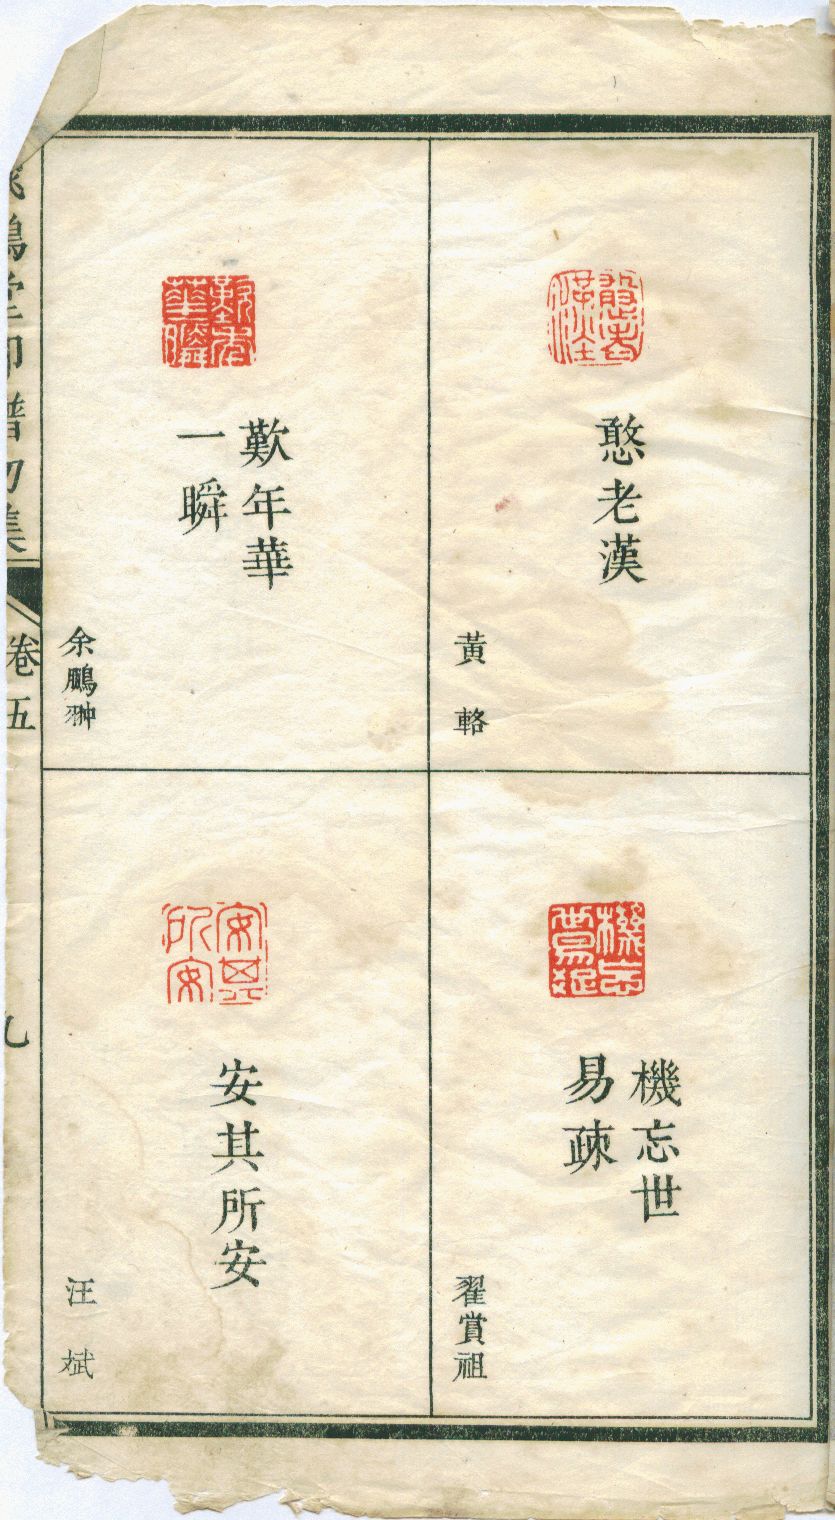 憨老漢
黃輅
機忘世
易疎
翟賞祖
歎年華
一瞬
余鵬翀
安其所安
汪斌
鴻堂印譜初集
卷五
九